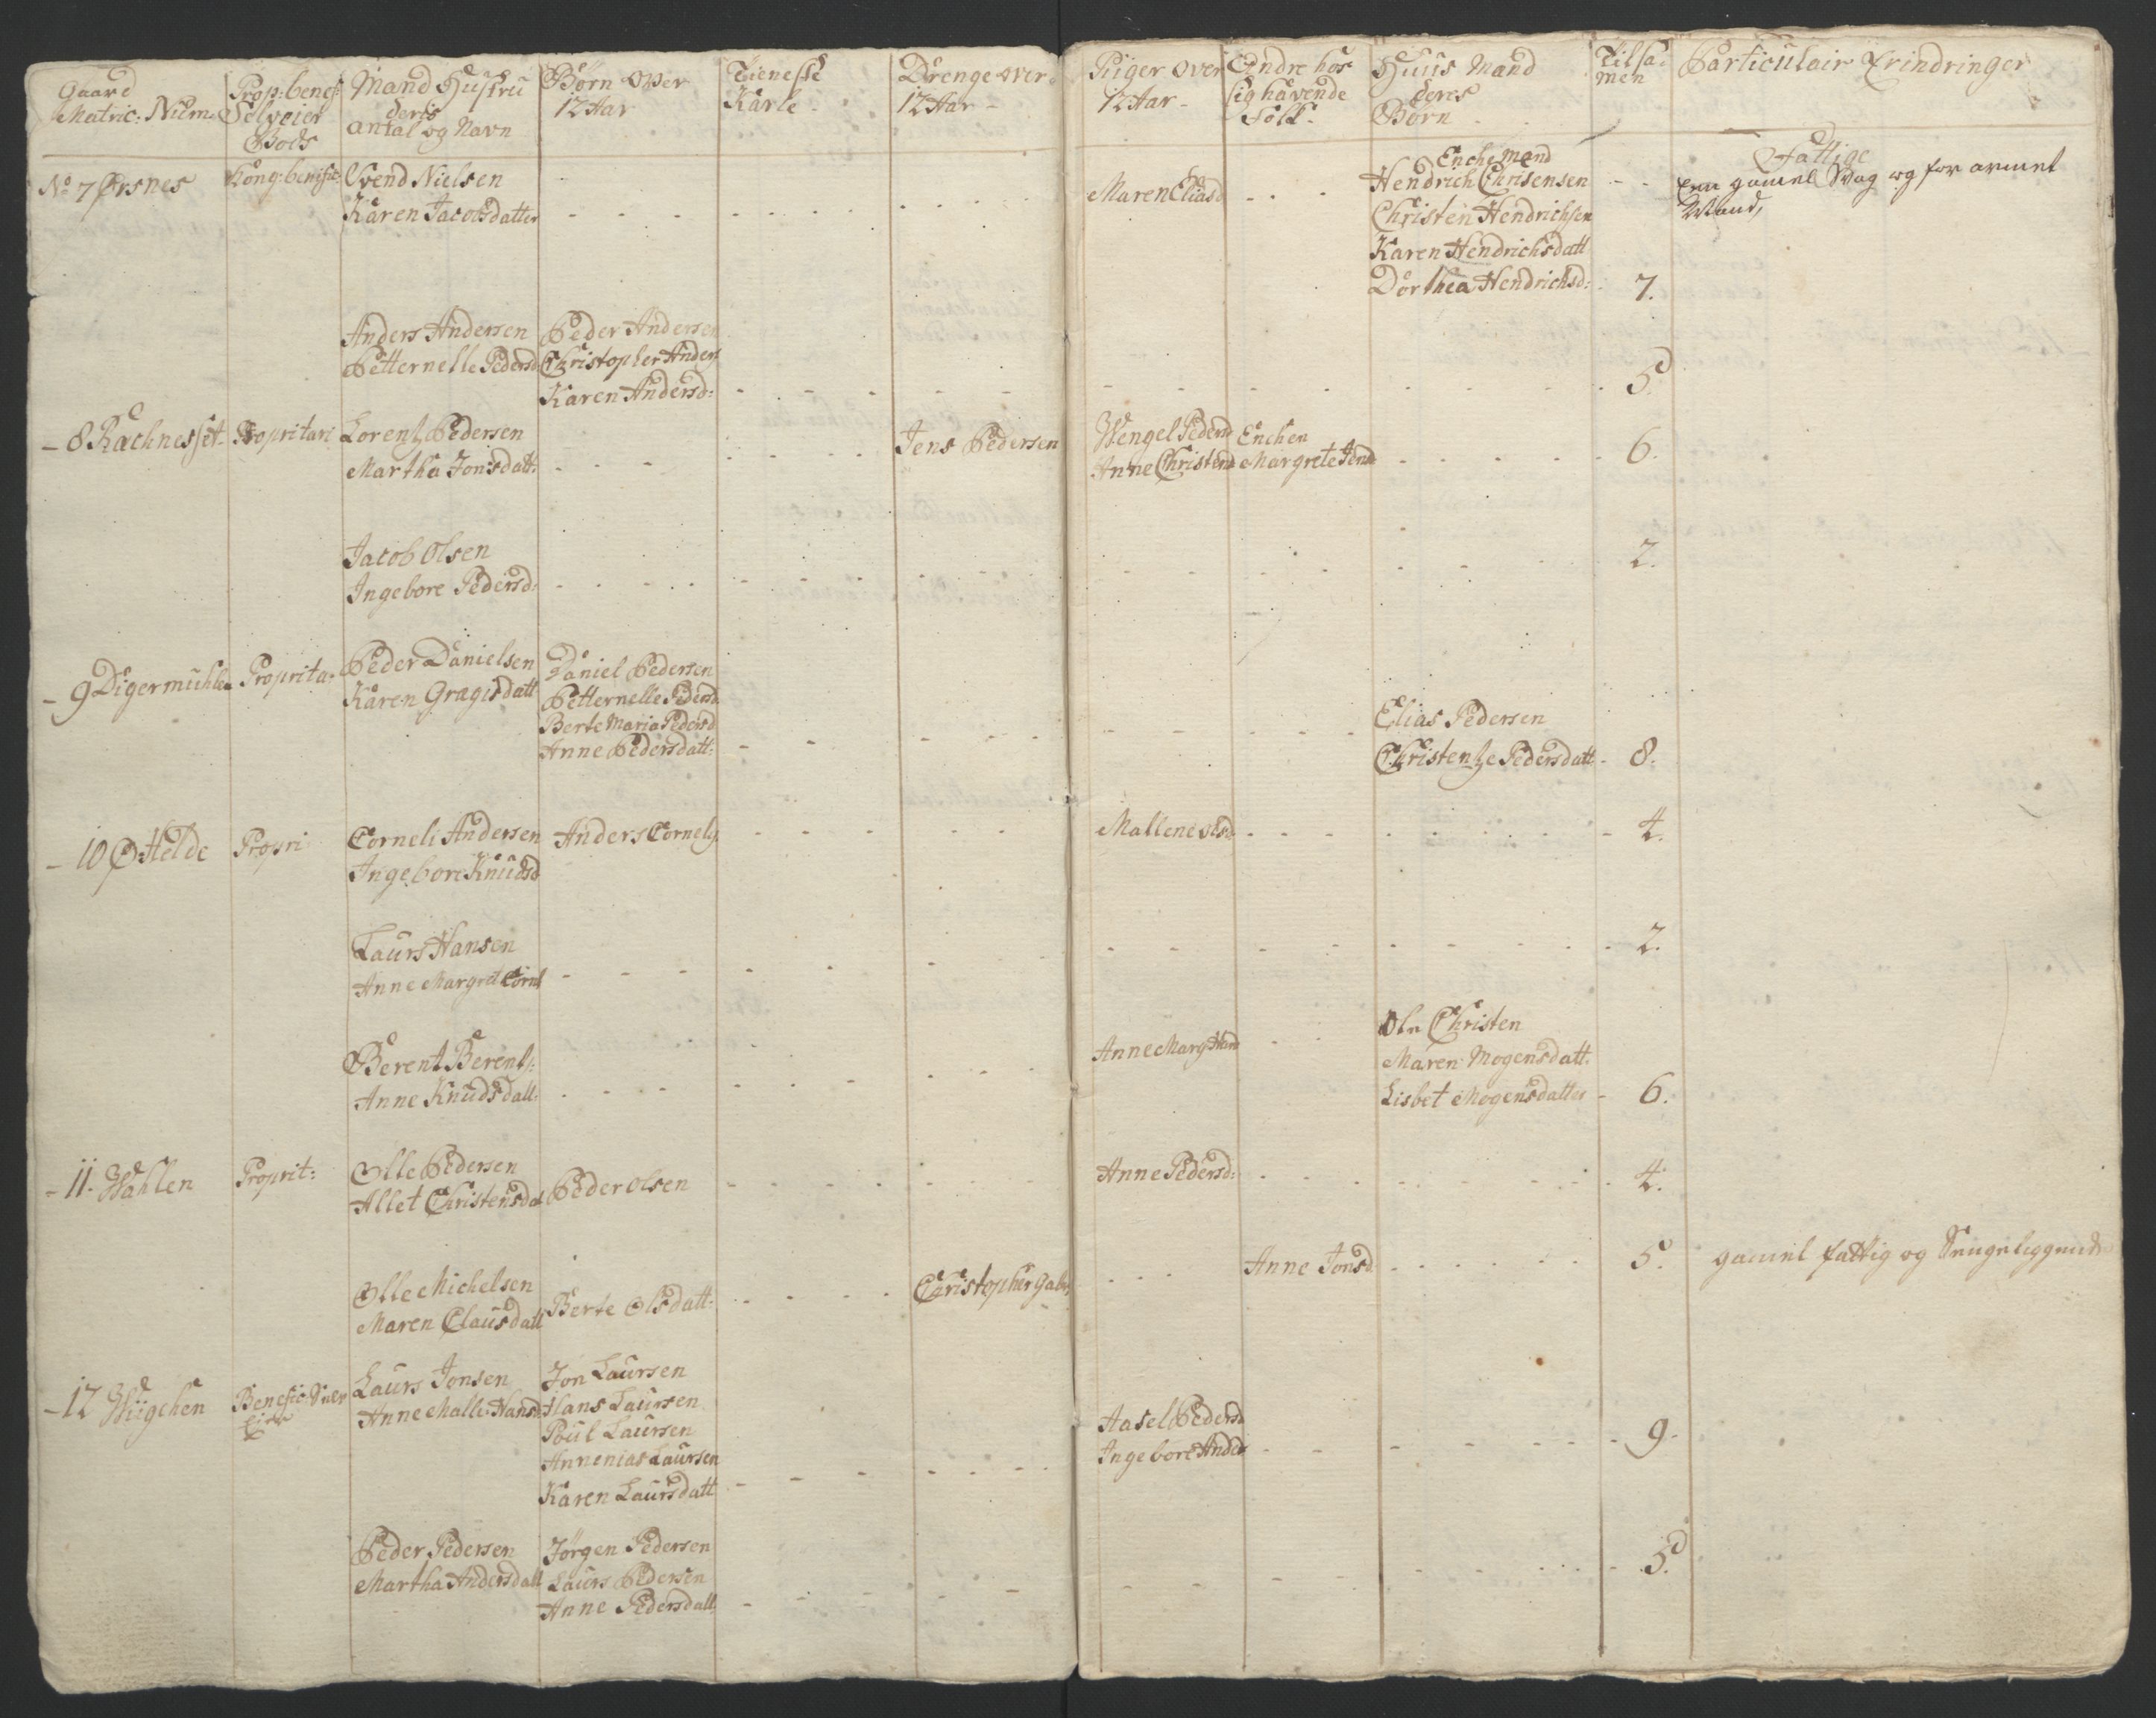 Gaard Matric: Num: | Prop: benef: Selveier Gods | Mand Hustru deris antal og Navn | Børn over 12 Aar | Tieneste Karle | Drenge over 12 Aar | Piiger over 12 Aar | Andre hos sig havende Folk | Huus Mand deres Børn | Tilsamen | Particulair Erindringer
No 7 Ørsnes | Kong: benific: | Svend Nielsen | Maren Eliasd | Enche Mand | Fattige
Karen Jacobsdatter | Hendrich Chrisensen | gamel Svag og for armet
Christen Hendrichsen | Mand,
Karen Hendrichsdatt
Dorthea Hendrichsd: | 7.
Anders Andersen | Peder Andersen
Petternelle Pedersd | Christopher Anders | 5.
Karen Andersd:
8 Rachnesset | Propritari | Lorentz Pedersen | Jens Pedersen | Wengel Pedersd | Enchen | 6.
Martha Jonsdatt: | Anne Christensd | Margrete Jensd
Jacob Olsen | 2.
Ingebore Pedersd:
9 Digermuhlen | Proprita: | Peder Danielsen | Daniel Pedersen
Karen Gragisdatt | Petternelle Pedersd | Elias Pedersen
Berte Maria Pedersd | Christentze Pedersdatt | 8.
Anne Pedersdatt:
10 Helde | Propri | Corneli Andersen | Anders Cornely | Mallene Olsd: | 4.
Ingebore Knudsd
Laurs Hansen | 2.
Anne Margret Cornl
Berent Berents: | Anne Marg Hansd | Ole Christen
Anne Knudsdatt: | Maren Mogensdatt.
Lisbet Mogensdatter | 6.
11. Wahlen | Proprit: | Olle Pedersen | Peder Olsen | Anne Pedersd: | 4.
Allet Christensdat
Olle Michelsen | Berte Olsdatt: | Christopher Gabr | Anne Jonsd. | 5. | gamel fattig og Sengeliggende
Maren Clausdatt
12 Wiigchen | Benefic: Selv Eier | Laurs Jonsen | Jon Laursen
Anne Malle Hansd | Hans Laursen | Aasel Pedersd
Poul Laursen | Ingebore Andersd | 9.
Annenias Laursen
Karen Laursdatt
Peder Pedersen | Jørgen Pedersen | 5.
Martha Andersdatt | Laurs Pedersen
Anne Pedersdatt